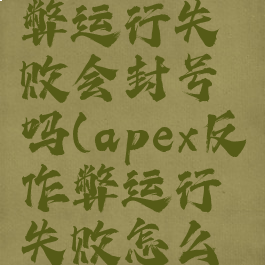 弊运行失
败会封号
吗(apex反
作弊运行
失败怎么